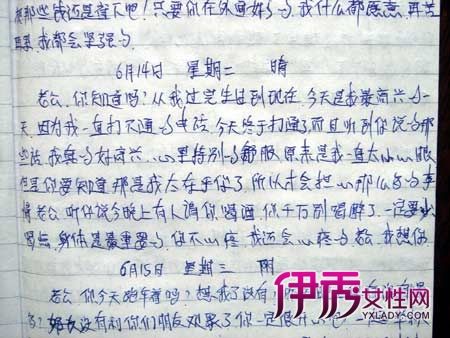 那些我还是留下吧！只要你在外面好的，我什么都愿意，再苦
再累，我都会坚强的。
6月14日 星期二 晴
老公，你知道吗？从我过完生日到现在，今天是我最高兴的一
天，因为我一直打不通的电话，今天终于打通了而且听到你说的那
些话，我真的好高兴，心里特别的舒服，原来是我一直太小心眼
但是你要知道，那是我太在乎你了，所以才会担心那么多的事
情，老公，听你说今晚上有人请你喝酒，你千万别喝醉了，一定要少
喝点，身体是最重要的，你不心疼，我还会心疼的，老公，我想你
6月15日 星期三 阴
老公，你今天跑车着吗？想我了没有
没有和你们朋友
伊秀女性网
YXLADY.COM